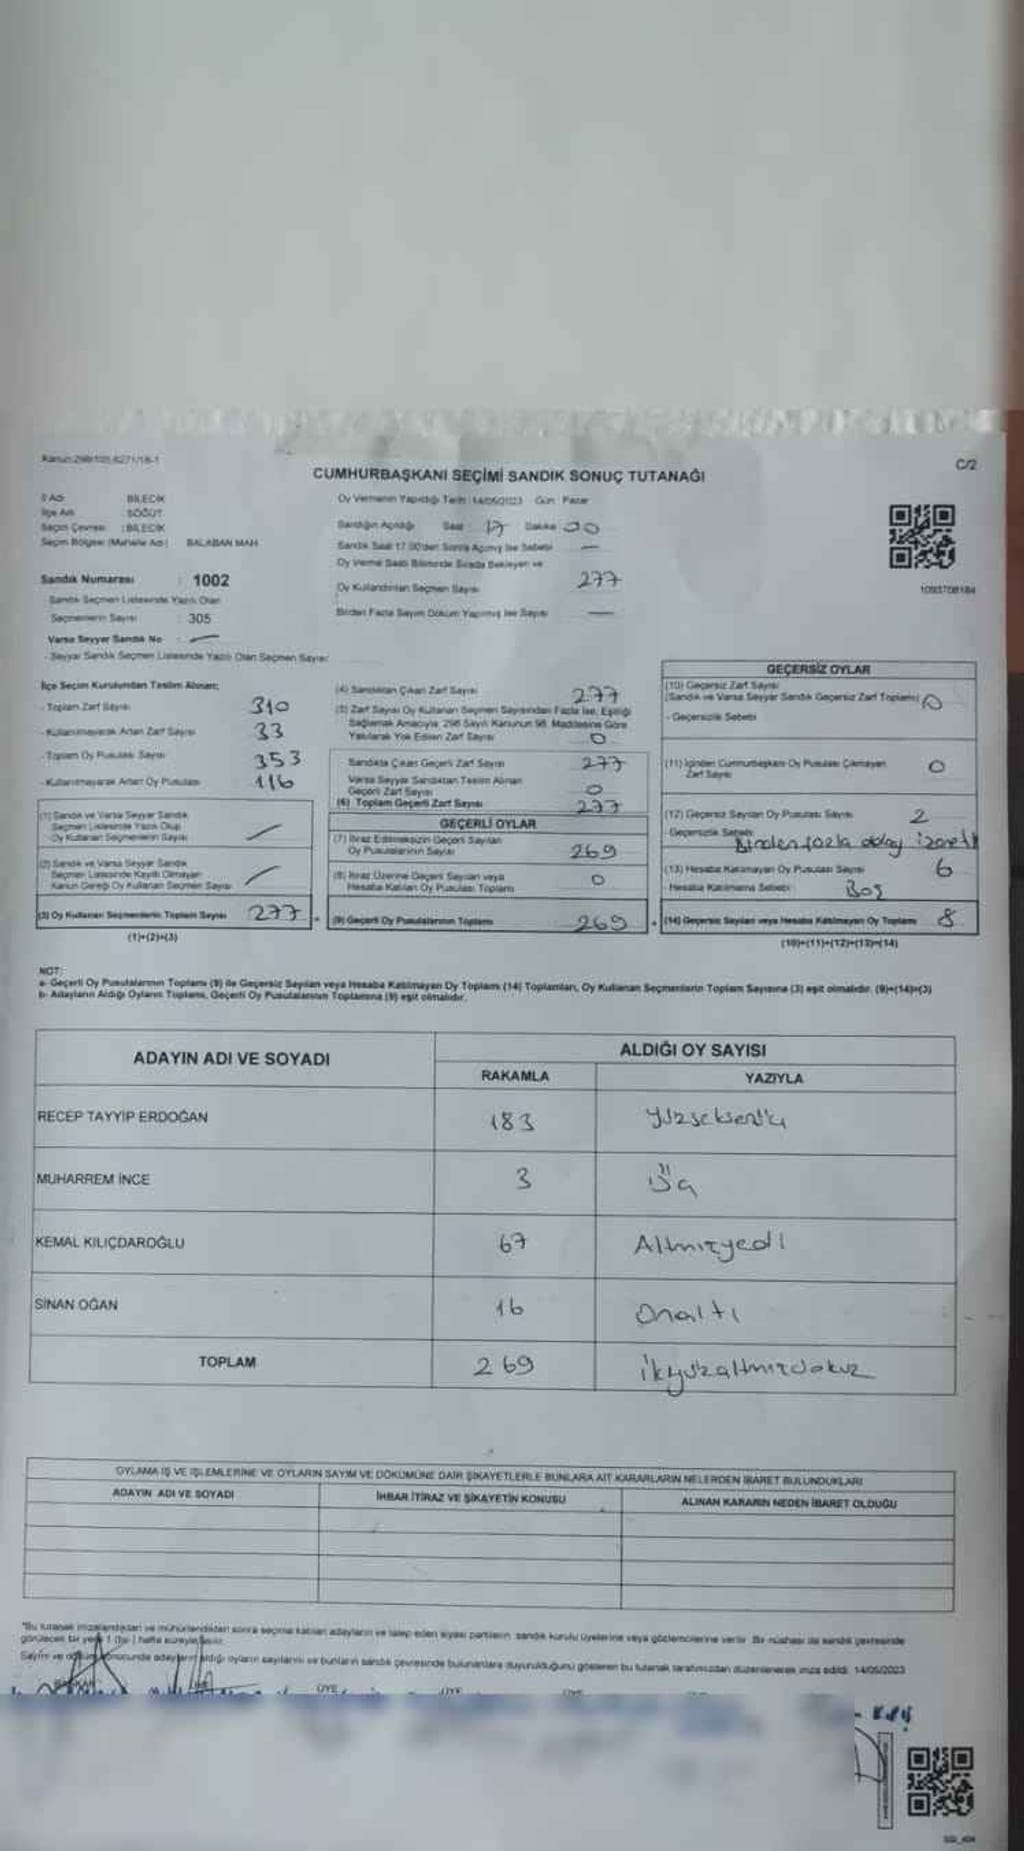 Kanun:298/105,6271/18-1
C/2
CUMHURBAŞKANI SEÇİMİ SANDIK SONUÇ TUTANAĞI
İl Adı : BİLECİK
İlçe Adı : SÖĞÜT
Seçim Çevresi : BİLECİK
Seçim Bölgesi (Mahalle Adı) BALABAN MAH
Sandık Numarası : 1002
Sandık Seçmen Listesinde Yazılı Olan
Seçmenlerin Sayısı : 305
Varsa Seyyar Sandık No : —
- Seyyar Sandık Seçmen Listesinde Yazılı Olan Seçmen Sayısı:
Oy Vermenin Yapıldığı Tarih : 14/05/2023 Gün : Pazar
Sandığın Açıldığı Saat : 17 Dakika 00
Sandık Saat 17.00'den Sonra Açılmış İse Sebebi —
Oy Verme Saati Bitiminde Sırada Bekleyen ve
Oy Kullandırılan Seçmen Sayısı 277
Birden Fazla Sayım Döküm Yapılmış İse Sayısı —
1093708184
İlçe Seçim Kurulundan Teslim Alınan;
- Toplam Zarf Sayısı 310
- Kullanılmayarak Artan Zarf Sayısı 33
- Toplam Oy Pusulası Sayısı 353
- Kullanılmayarak Artan Oy Pusulası 116
(1) Sandık ve Varsa Seyyar Sandık
Seçmen Listesinde Yazılı Olup
Oy Kullanan Seçmenlerin Sayısı
(2) Sandık ve Varsa Seyyar Sandık
Seçmen Listesinde Kayıtlı Olmayan
Kanun Gereği Oy Kullanan Seçmen Sayısı
(3) Oy Kullanan Seçmenlerin Toplam Sayısı 277
(1)+(2)=(3)
(4) Sandıktan Çıkan Zarf Sayısı 277
(5) Zarf Sayısı Oy Kullanan Seçmen Sayısından Fazla İse, Eşitliği
Sağlamak Amacıyla, 298 Sayılı Kanunun 98. Maddesine Göre
Yakılarak Yok Edilen Zarf Sayısı 0
Sandıkta Çıkan Geçerli Zarf Sayısı 277
Varsa Seyyar Sandıktan Teslim Alınan
Geçerli Zarf Sayısı 0
(6) Toplam Geçerli Zarf Sayısı 277
GEÇERLİ OYLAR
(7) İtiraz Edilmeksizin Geçerli Sayılan
Oy Pusulalarının Sayısı 269
(8) İtiraz Üzerine Geçerli Sayılan veya
Hesaba Katılan Oy Pusulası Toplamı 0
(9) Geçerli Oy Pusulalarının Toplamı 269
GEÇERSİZ OYLAR
(10) Geçersiz Zarf Sayısı
(Sandık ve Varsa Seyyar Sandık Geçersiz Zarf Toplamı) 0
- Geçersizlik Sebebi
(11) İçinden Cumhurbaşkanı Oy Pusulası Çıkmayan
Zarf Sayısı 0
(12) Geçersiz Sayılan Oy Pusulası Sayısı 2
- Geçersizlik Sebebi Birden fazla
(13) Hesaba Katılmayan Oy Pusulası Sayısı 6
- Hesaba Katılmama Sebebi Boş
(14) Geçersiz Sayılan veya Hesaba Katılmayan Oy Toplamı 8
(10)+(11)+(12)+(13)=(14)
NOT:
a- Geçerli Oy Pusulalarının Toplamı (9) ile Geçersiz Sayılan veya Hesaba Katılmayan Oy Toplamı (14) Toplamları, Oy Kullanan Seçmenlerin Toplam Sayısına (3) eşit olmalıdır. (9)+(14)=(3)
b- Adayların Aldığı Oyların Toplamı, Geçerli Oy Pusulalarının Toplamına (9) eşit olmalıdır.
ADAYIN ADI VE SOYADI
ALDIĞI OY SAYISI
RAKAMLA YAZIYLA
RECEP TAYYIP ERDOĞAN 183 Yüzseksenüç
MUHARREM İNCE 3 Üç
KEMAL KILIÇDAROĞLU 67 Altmışyedi
SİNAN OĞAN 16 Onaltı
TOPLAM 269 ikiyüzaltmışdokuz
OYLAMA İŞ VE İŞLEMLERİNE VE OYLARIN SAYIM VE DÖKÜMÜNE DAİR ŞİKAYETLERLE BUNLARA AİT KARARLARIN NELERDEN İBARET BULUNDUKLARI
ADAYIN ADI VE SOYADI İHBAR İTİRAZ VE ŞİKAYETİN KONUSU ALINAN KARARIN NEDEN İBARET OLDUĞU
"Bu tutanak imzalandıktan ve mühürlendikten sonra seçime katılan adayların ve talep eden siyasi partilerin, sandık kurulu üyelerine veya gözlemcilerine verilir. Bir nüshası da sandık çevresinde
görülecek bir yere 1 (bir) hafta süreyle asılır.
Sayım ve döküm sonucunda adayların aldığı oyların sayılarını ve bunların sandık çevresinde bulunanlara duyurulduğunu gösteren bu tutanak tarafımızdan düzenlenerek imza edildi. 14/05/2023
BAŞKAN ÜYE ÜYE ÜYE